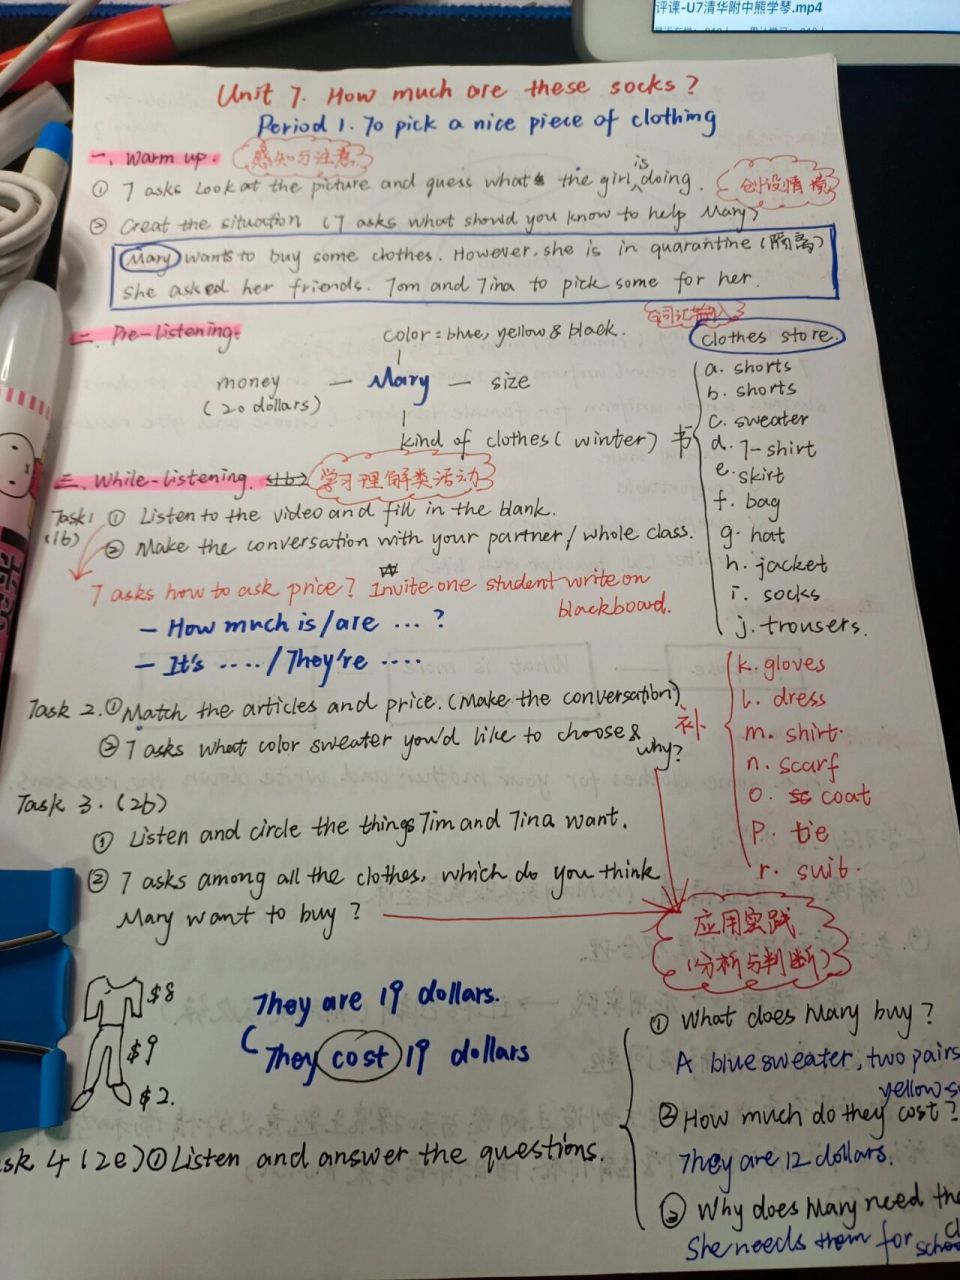 评课-U7清华附中熊学琴.mp4
Unit 7. How much are these socks?
Period 1. To pick a nice piece of clothing
一、Warm up. 感知与注意
① T asks Look at the picture and guess what the girl is doing. 创设情境
② Creat the situation (T asks what should you know to help Mary)
Mary wants to buy some clothes. However, she is in quarantine (隔离)
She asked her friends. Tom and Tina to pick some for her.
二、Pre-listening. 词汇输入
color = blue, yellow & black.
money — Mary — size
(20 dollars)
kind of clothes (winter) 书
clothes store.
a. shorts
b. shorts
c. sweater
d. T-shirt
e. skirt
f. bag
g. hat
h. jacket
i. socks
j. trousers.
补
k. gloves
l. dress
m. shirt.
n. scarf
o. coat
p. tie
r. suit.
三、While-listening. (1b) 学习理解类活动
Task1 ① Listen to the video and fill in the blank.
(1b) ② Make the conversation with your partner / whole class.
T asks how to ask price? Invite one student write on
blackboard.
— How much is/are ... ?
— It's .... / They're ....
Task 2. ① Match the articles and price. (Make the conversation)
② T asks what color sweater you'd like to choose &
why?
Task 3. (2b)
① Listen and circle the things Tim and Tina want.
② T asks among all the clothes, which do you think
Mary want to buy?
应用实践
(分析与判断)
$8
$9
$2.
They are 19 dollars.
They cost 19 dollars
sk 4 (2e) ① Listen and answer the questions.
① What does Mary buy?
A blue sweater, two pairs
yellow s
② How much do they cost?
They are 12 dollars.
③ Why does Mary need the
She needs them for